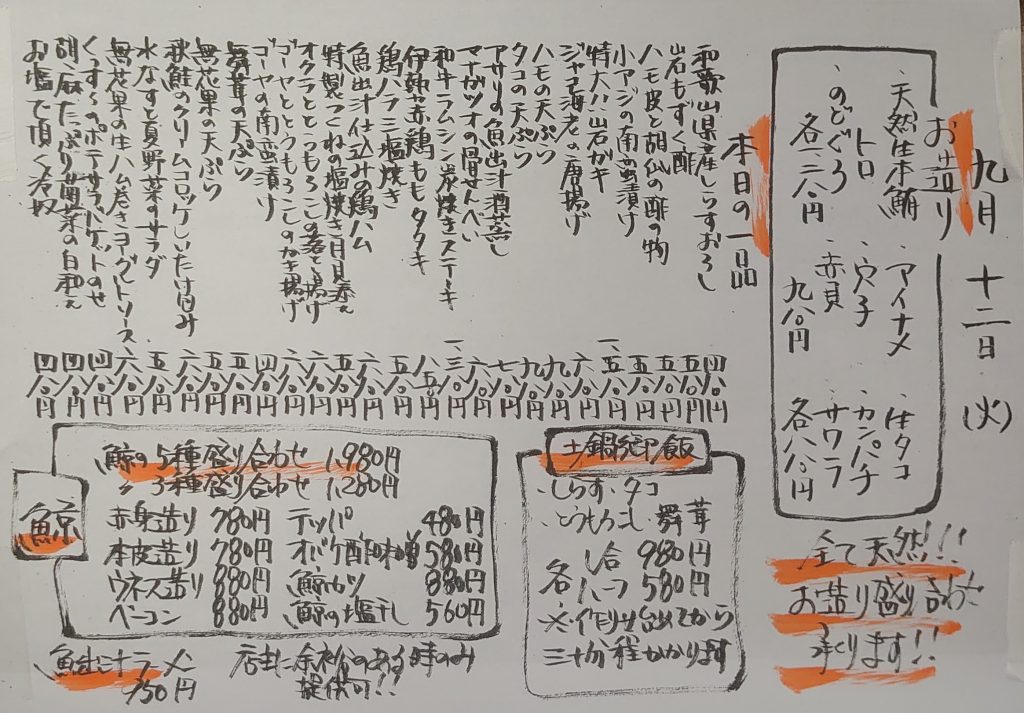 九月 十二日 (火)
お造り
・天然生本鮪
トロ
・のどぐろ
各一、三八〇円
・アイナメ
・穴子
・赤貝
九八〇円
・生タコ
・カンパチ
・サワラ
各八八〇円
全て天然!!
お造り盛り合わせ
承ります!!
本日の一品
和歌山県産しらすおろし 四八〇円
岩もずく酢 五八〇円
ハモ皮と胡瓜の酢の物 五八〇円
小アジの南蛮漬け 五八〇円
特大!!岩ガキ 一、五八〇円
ジャモ海老の唐揚げ 六八〇円
ハモの天ぷら 九八〇円
タコの天ぷら 九八〇円
アサリの魚出汁酒蒸し 七八〇円
マナガツオの骨せんべい 六八〇円
和牛ラムシン炭焼きステーキ 一、三八〇円
伊勢赤鶏ももタタキ 八五〇円
鶏ハラミ塩焼き 五八〇円
魚出汁仕込みの鶏ハム 六八〇円
特製つくねの塩焼き月見添え 五八〇円
オクラととうもろこしの落とし揚げ 六八〇円
ゴーヤととうもろこしのかき揚げ 六八〇円
ゴーヤの南蛮漬け 四八〇円
舞茸の天ぷら 五八〇円
無花果の天ぷら 五八〇円
秋鮭のクリームコロッケしいたけ包み 六八〇円
水なすと夏野菜のサラダ 五八〇円
無花果の生ハム巻きヨーグルトソース 六八〇円
くんずのポテサラバゲットのせ 四八〇円
胡麻たっぷり菊菜の白和え 四八〇円
お塩で頂く冷奴 四八〇円
土鍋御飯
・しらす・タコ
・とうもろこし 舞茸
各 一合 980円
ハーフ 580円
※作り出してから
三十分程かかります
鯨
鯨の5種盛り合わせ 1,980円
〃 3種盛り合わせ 1,280円
赤身造り 780円 テッパ 480円
本皮造り 780円 オバケ酢味噌 580円
ウネス造り 880円 鯨カツ 880円
ベーコン 880円 鯨の塩干し 560円
魚出汁ラーメン
950円
店主に余裕のある時のみ
提供可!!